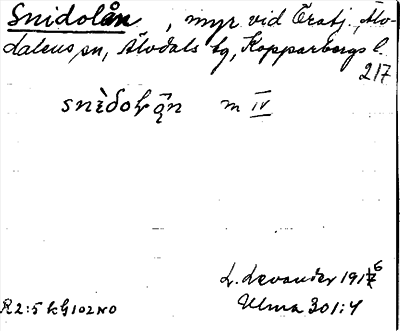 Snidolån, myr vid Eratj, Älv-
dalens sn, Älvdals tg, Kopparbergs l.
217
m IV
L. Levander 1916
Ulma 301:4
R2:5 kG102NO